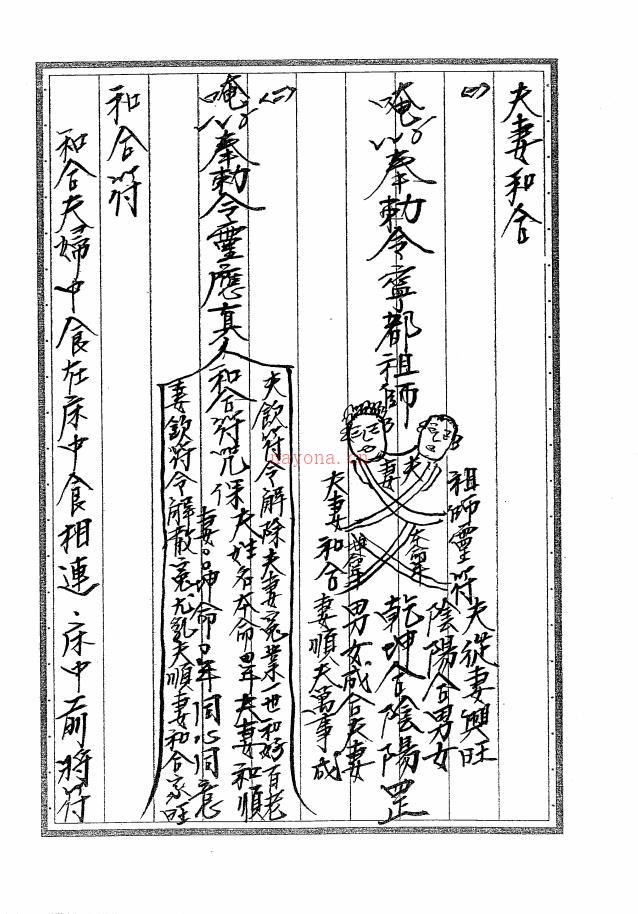 夫妻和合
(一)
唵奉勅令寧都祖師
夫
妻
祖師靈符夫從妻興旺
陰陽合男女
乾坤合陰陽罡
男女成合夫妻
夫妻和合妻順夫萬事成
(二)
唵奉勅令靈應真人和合符咒保夫姓名本命 年夫妻和順
妻 坤命 年同心同意
夫飲符令解除夫妻冤業一世和好百老
妻飲符令解散冤尤亂夫順妻和合家旺
和合符
和合夫婦中食在床中食相連、床中前將符
nayona.cn